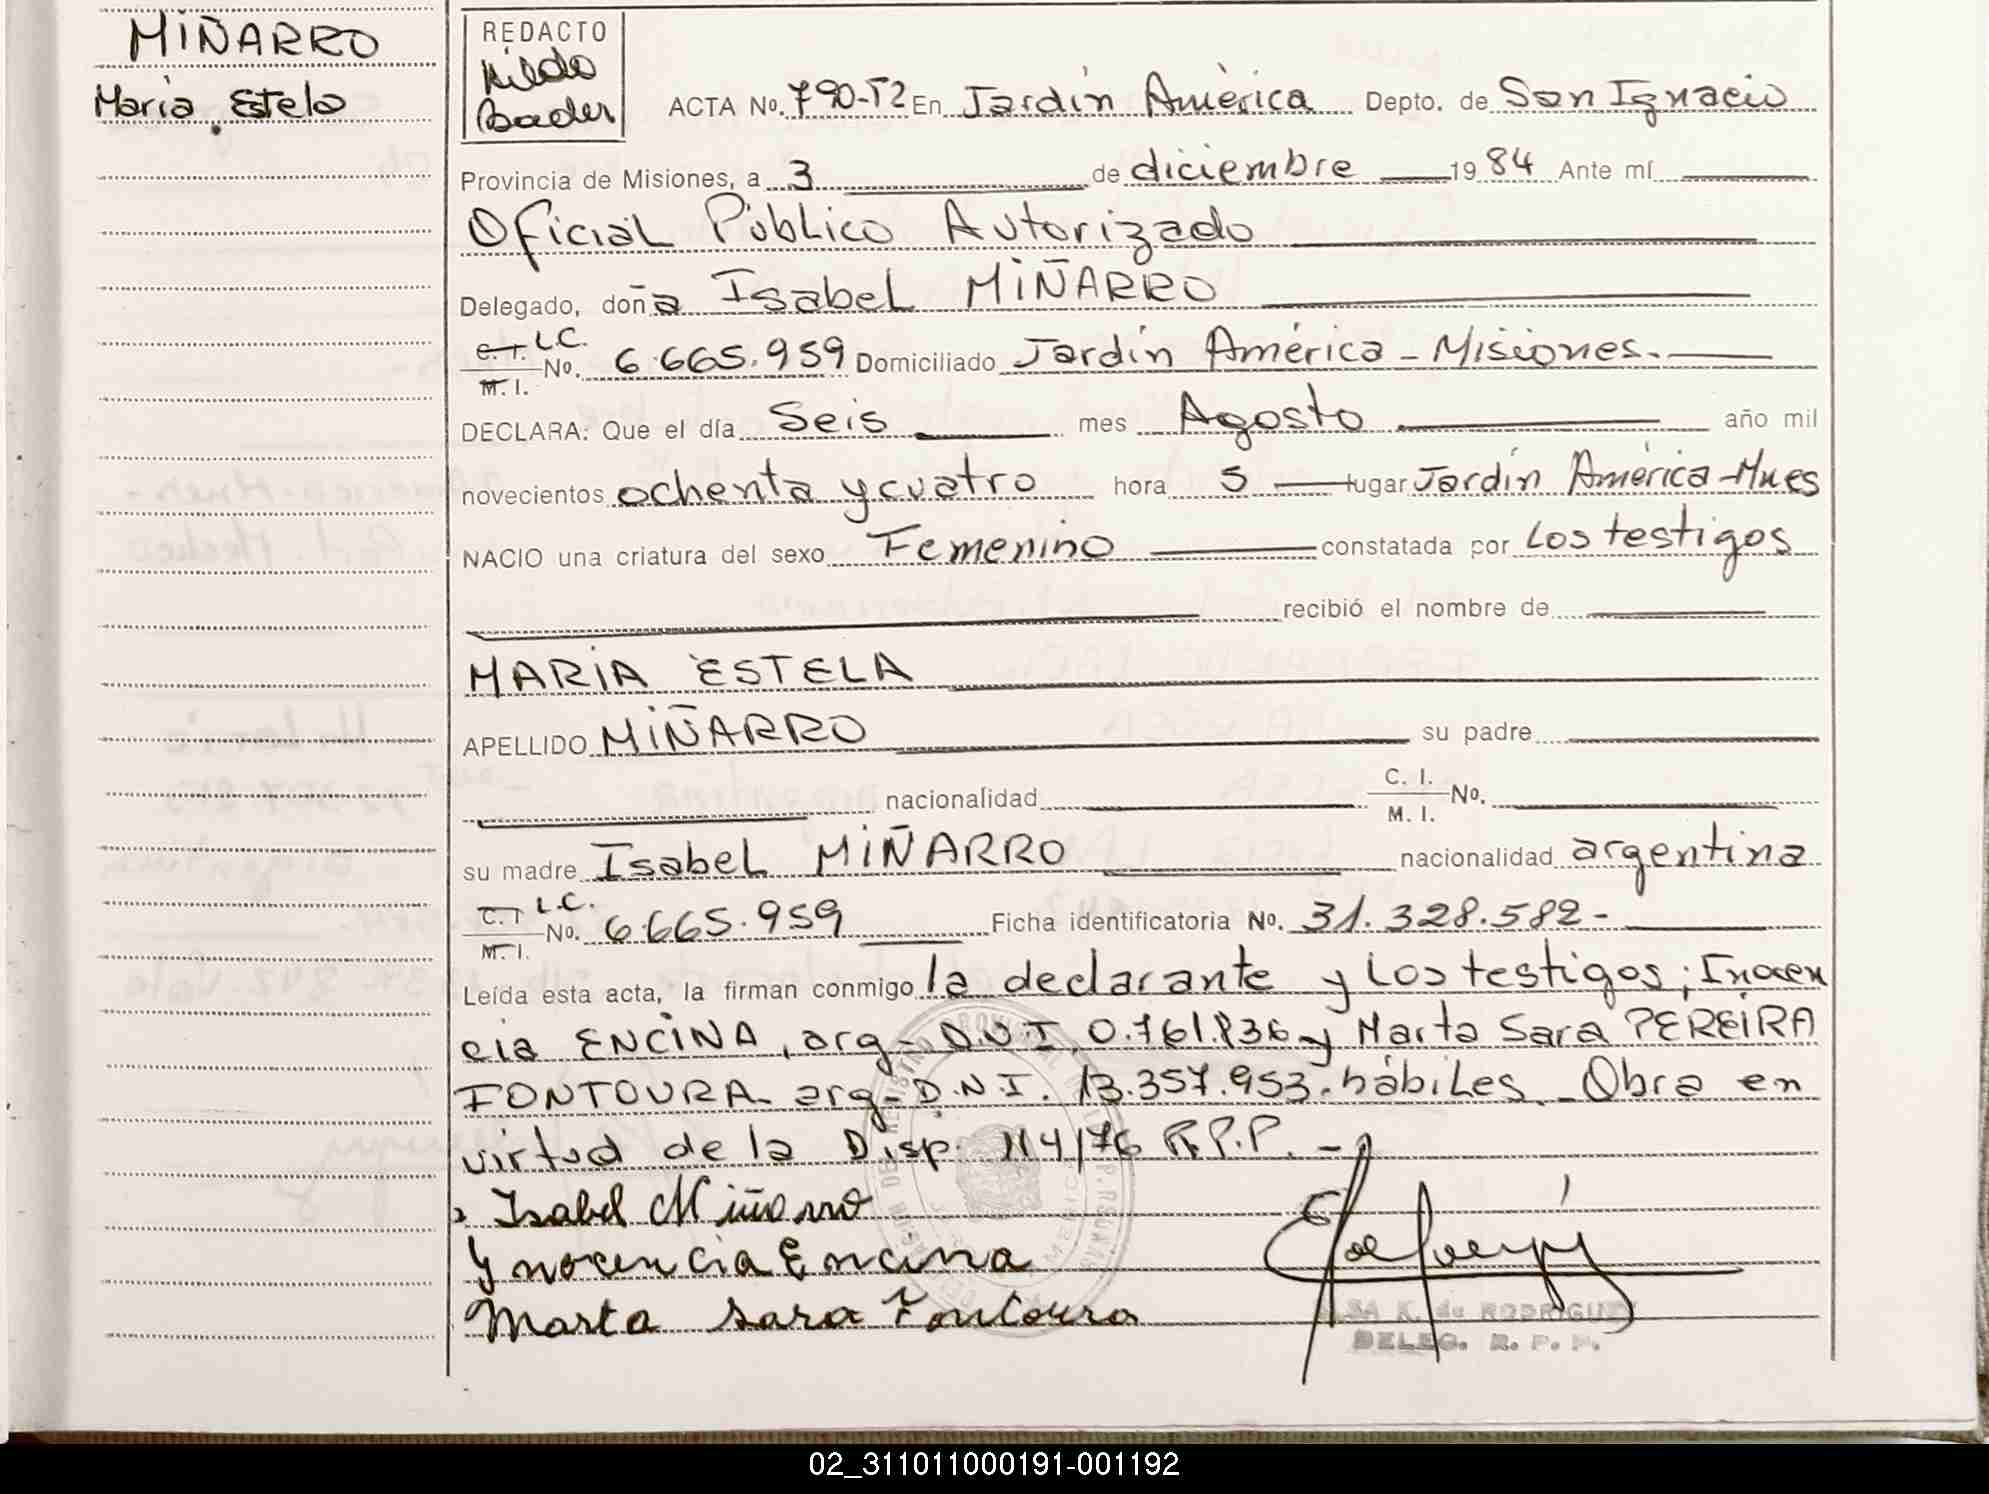 MIÑARRO
María Estela
REDACTO
ACTA No. 790-T2 En Jardín América Depto. de San Ignacio
Provincia de Misiones, a 3 de diciembre 1984 Ante mí
Oficial Público Autorizado
Delegado, doña Isabel MIÑARRO
C.I. L.C. M.I. No. 6.665.959 Domiciliado Jardín América - Misiones.
DECLARA: Que el día Seis mes Agosto año mil
novecientos ochenta y cuatro hora 5 lugar Jardín América-Mnes
NACIO una criatura del sexo Femenino constatada por los testigos
recibió el nombre de
MARIA ESTELA
APELLIDO MIÑARRO su padre
nacionalidad C. I. M. I. No.
su madre Isabel MIÑARRO nacionalidad argentina
C.I L.C. M.I. No. 6.665.959 Ficha identificatoria No. 31.328.582-
Leída esta acta, la firman conmigo la declarante y los testigos; Inocen
cia ENCINA, arg- D.N.I. 0.761.836 y Marta Sara PEREIRA
FONTOURA- arg- D.N.I. 13.357.953. hábiles.- Obra en
virtud de la Disp. 114/76 R.P.P. -
Isabel Miñarro
Ynocencia Encina
Marta Sara Fontoura
K. de RODRIGUEZ
DELEG. R. P. P.
02_311011000191-001192